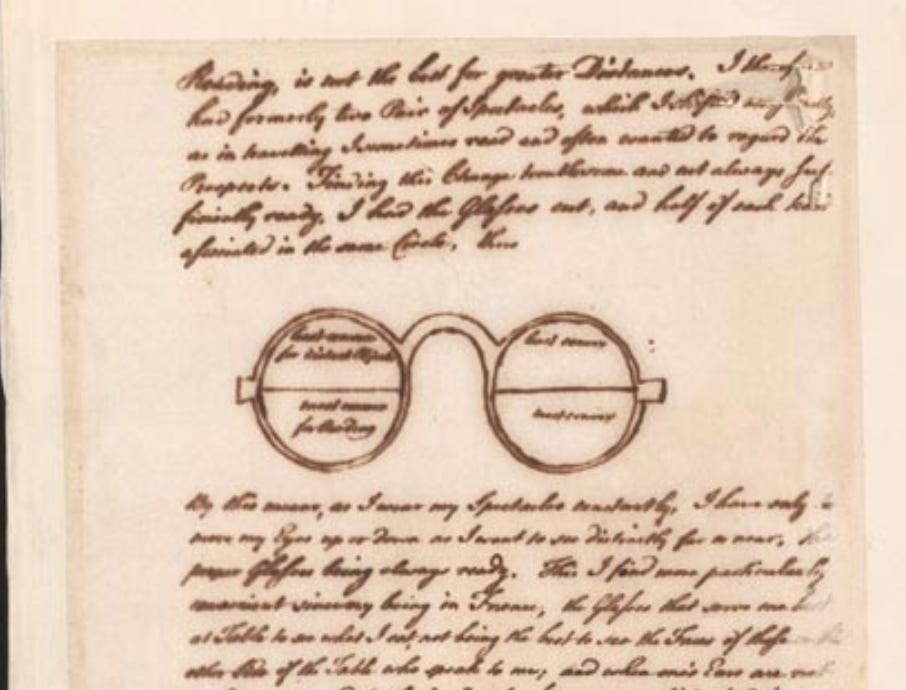 Reading, is not the best for greater Distances. I therefore
had formerly two Pair of Spectacles, which I shifted occasionally,
as in travelling I sometimes read and often wanted to regard the
Prospects. Finding this Change troublesome and not always suf-
ficiently ready, I had the Glasses cut, and half of each kind
associated in the same Circle, thus
least convex
for distant Objects
least convex
most convex
for Reading
most convex
By this means, as I wear my Spectacles constantly, I have only to
move my Eyes up or down as I want to see distinctly far or near, the
proper Glasses being always ready. This I find more particularly
convenient since my being in France, the Glasses that serve me best
at Table to see what I eat, not being the best to see the Faces of those on the
other Side of the Table who speak to me; and when one's Ears are not